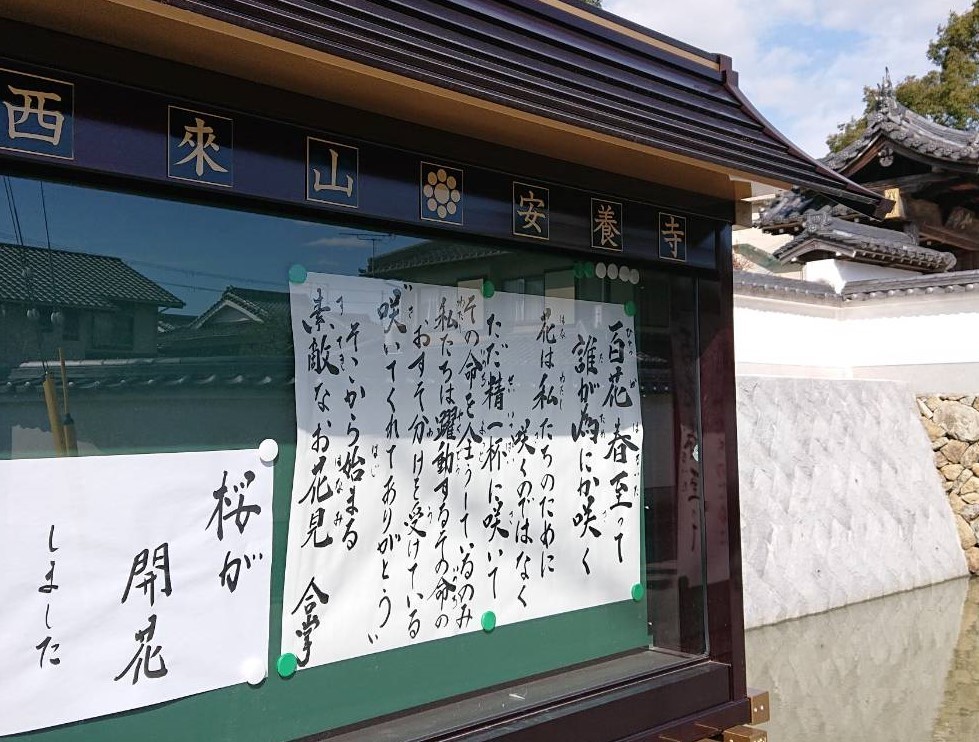 西來山 安養寺
百花春至って
誰が為にか咲く
花は私たちのために
咲くのではなく
ただ精一杯に咲いて
その命を全うしているのみ
私たちは躍動するその命の
おすそ分けを受けている
〝咲いてくれてありがとう〟
そこから始まる
素敵なお花見 合掌
桜が
開花
しました